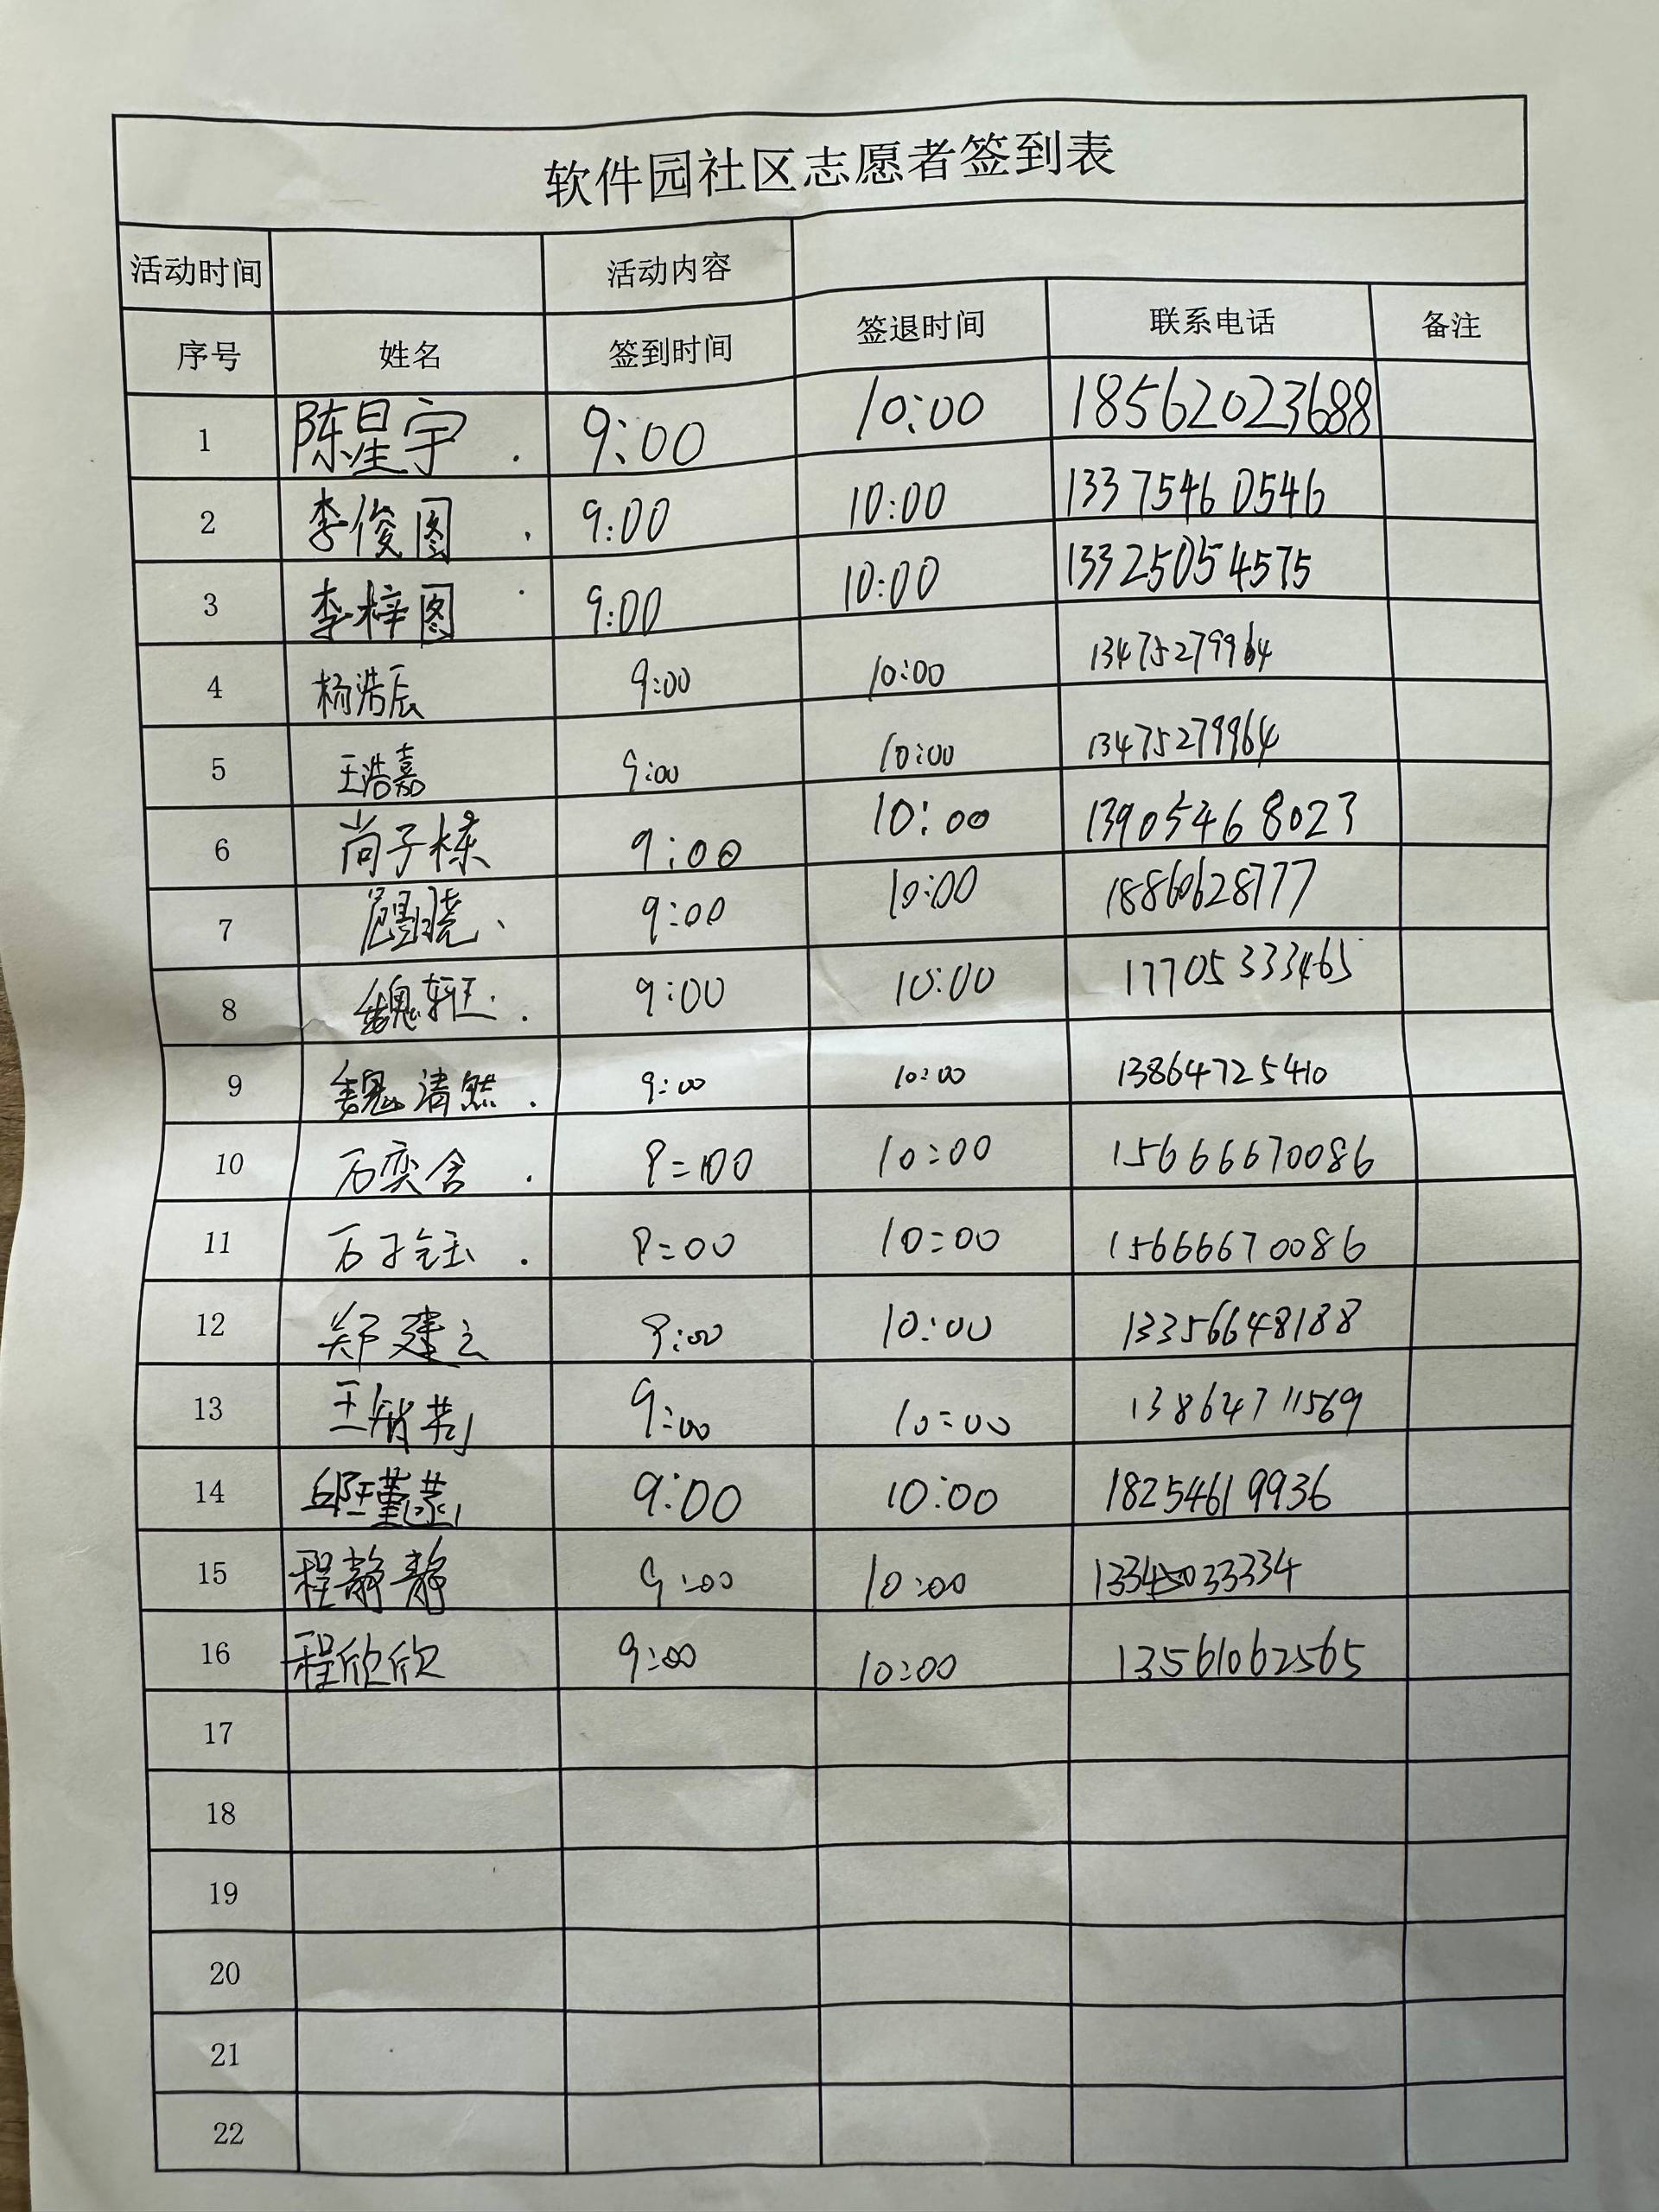 软件园社区志愿者签到表
活动时间 活动内容
序号 姓名 签到时间 签退时间 联系电话 备注
1 陈星宇 9:00 10:00 18562023688
2 李俊图 9:00 10:00 13375460546
3 李梓图 9:00 10:00 13325054575
4 杨浩辰 9:00 10:00 13475279964
5 王浩嘉 9:00 10:00 13475279964
6 尚子栋 9:00 10:00 13905468023
7 9:00 10:00 18860628777
8 9:00 10:00 17705333465
9 魏清然 9:00 10:00 13864725410
10 石奕含 10:00 15666670086
11 石子钰 9:00 10:00 15666670086
12 郑建云 9:00 10:00 13356648188
13 9:00 10:00 13864711569
14 9:00 10:00 18254619936
15 程静静 9:00 10:00
16 程欣欣 9:00 10:00 13561062565
17
18
19
20
21
22